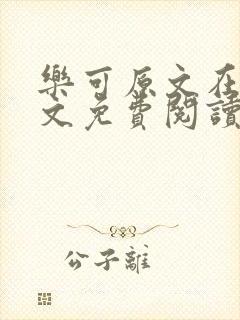 樂可原文在
文免費閱讀
公子離